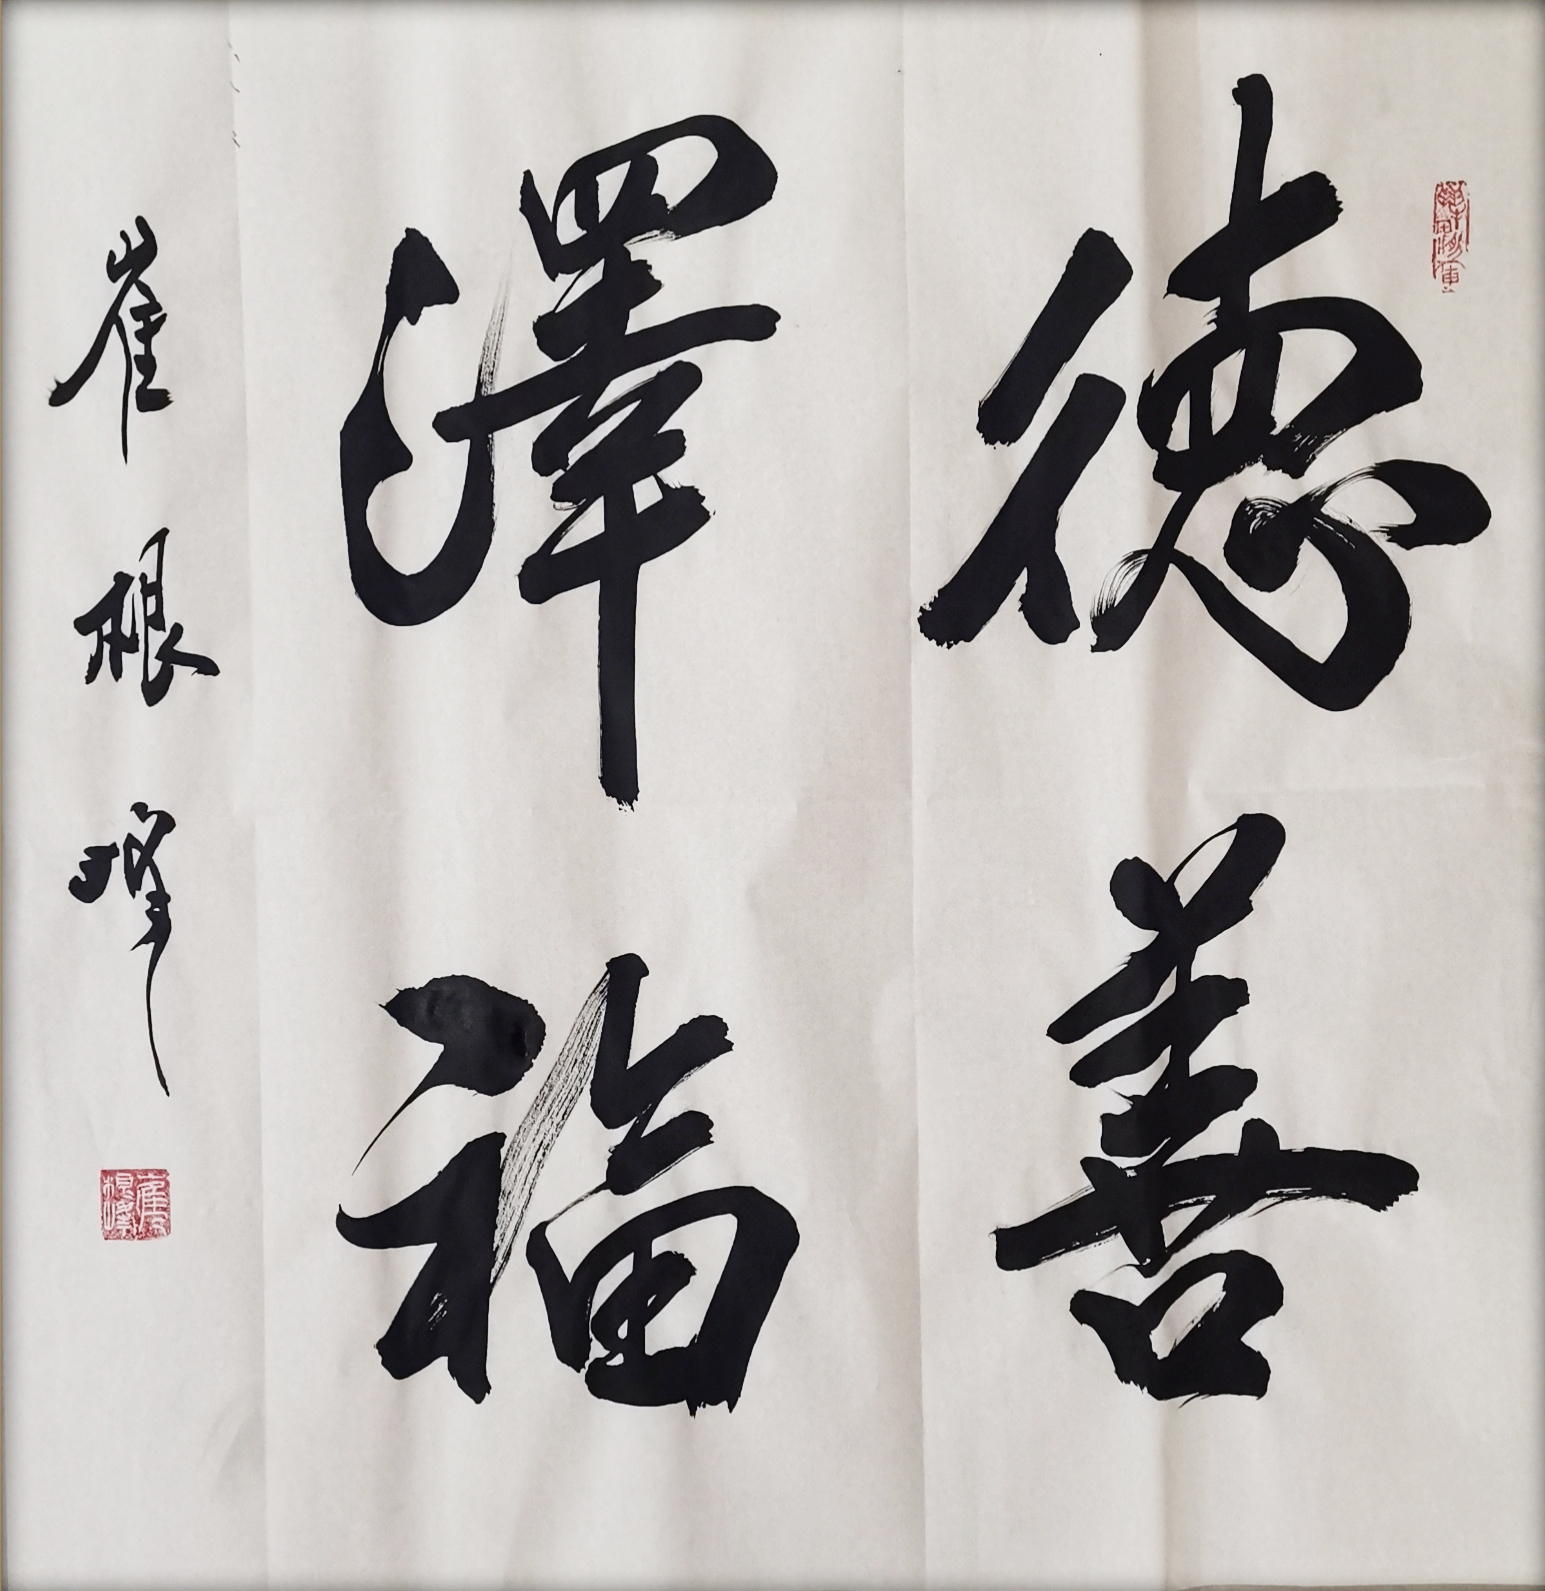 德善
澤福
崔根峰